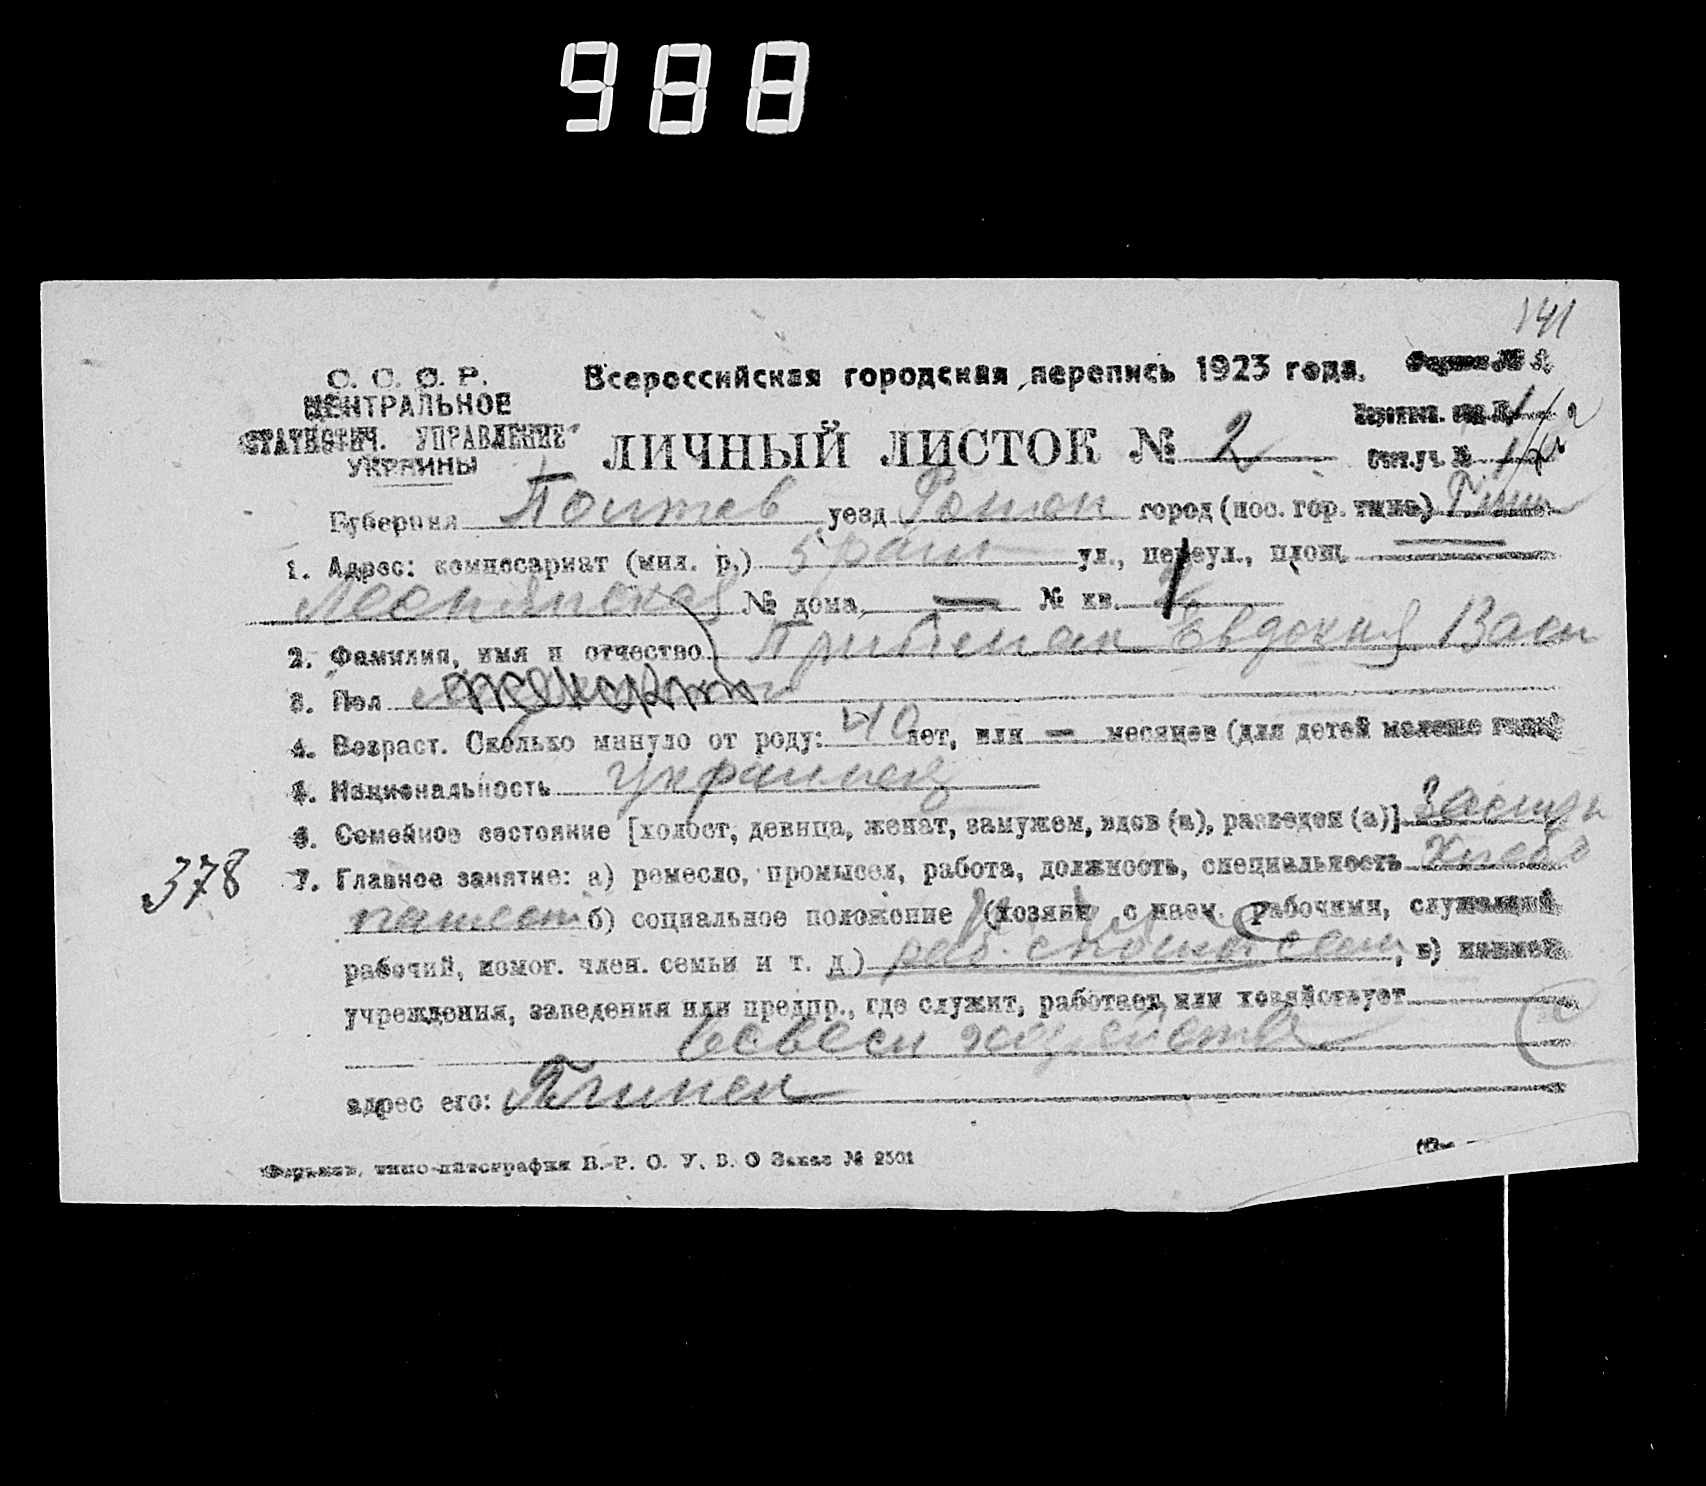 988
141
С. С. С. Р.
ЦЕНТРАЛЬНОЕ
СТАТИСТИЧ. УПРАВЛЕНИЕ
УКРАИНЫ
Всероссийская городская перепись 1923 года.
Форма № 2.
ЛИЧНЫЙ ЛИСТОК № 2
Счетн. уч. №
Губерния Полтав уезд Ромен город (пос. гор. типа)
1. Адрес: комиссариат (мил. р.) 5 район ул., переул., площ.
№ дома — № кв.
2. Фамилия, имя и отчество Евдокия Васи
3. Пол женский
4. Возраст. Сколько минуло от роду: 40 лет, или — месяцев (для детей моложе года)
5. Национальность украинец
6. Семейное состояние [холост, девица, женат, замужем, вдов (а), разведен (а)] замуж
378
7. Главное занятие: а) ремесло, промысел, работа, должность, специальность хлебо
пашест б) социальное положение (хозяин с наем. рабочими, служащий
рабочий, помог. член. семьи и т. д.) , в) наимен.
учреждения, заведения или предпр., где служит, работает или хозяйствует
в своем хозяйстве
адрес его:
типо-литография В.-Р. О. У. В. О Заказ № 2501